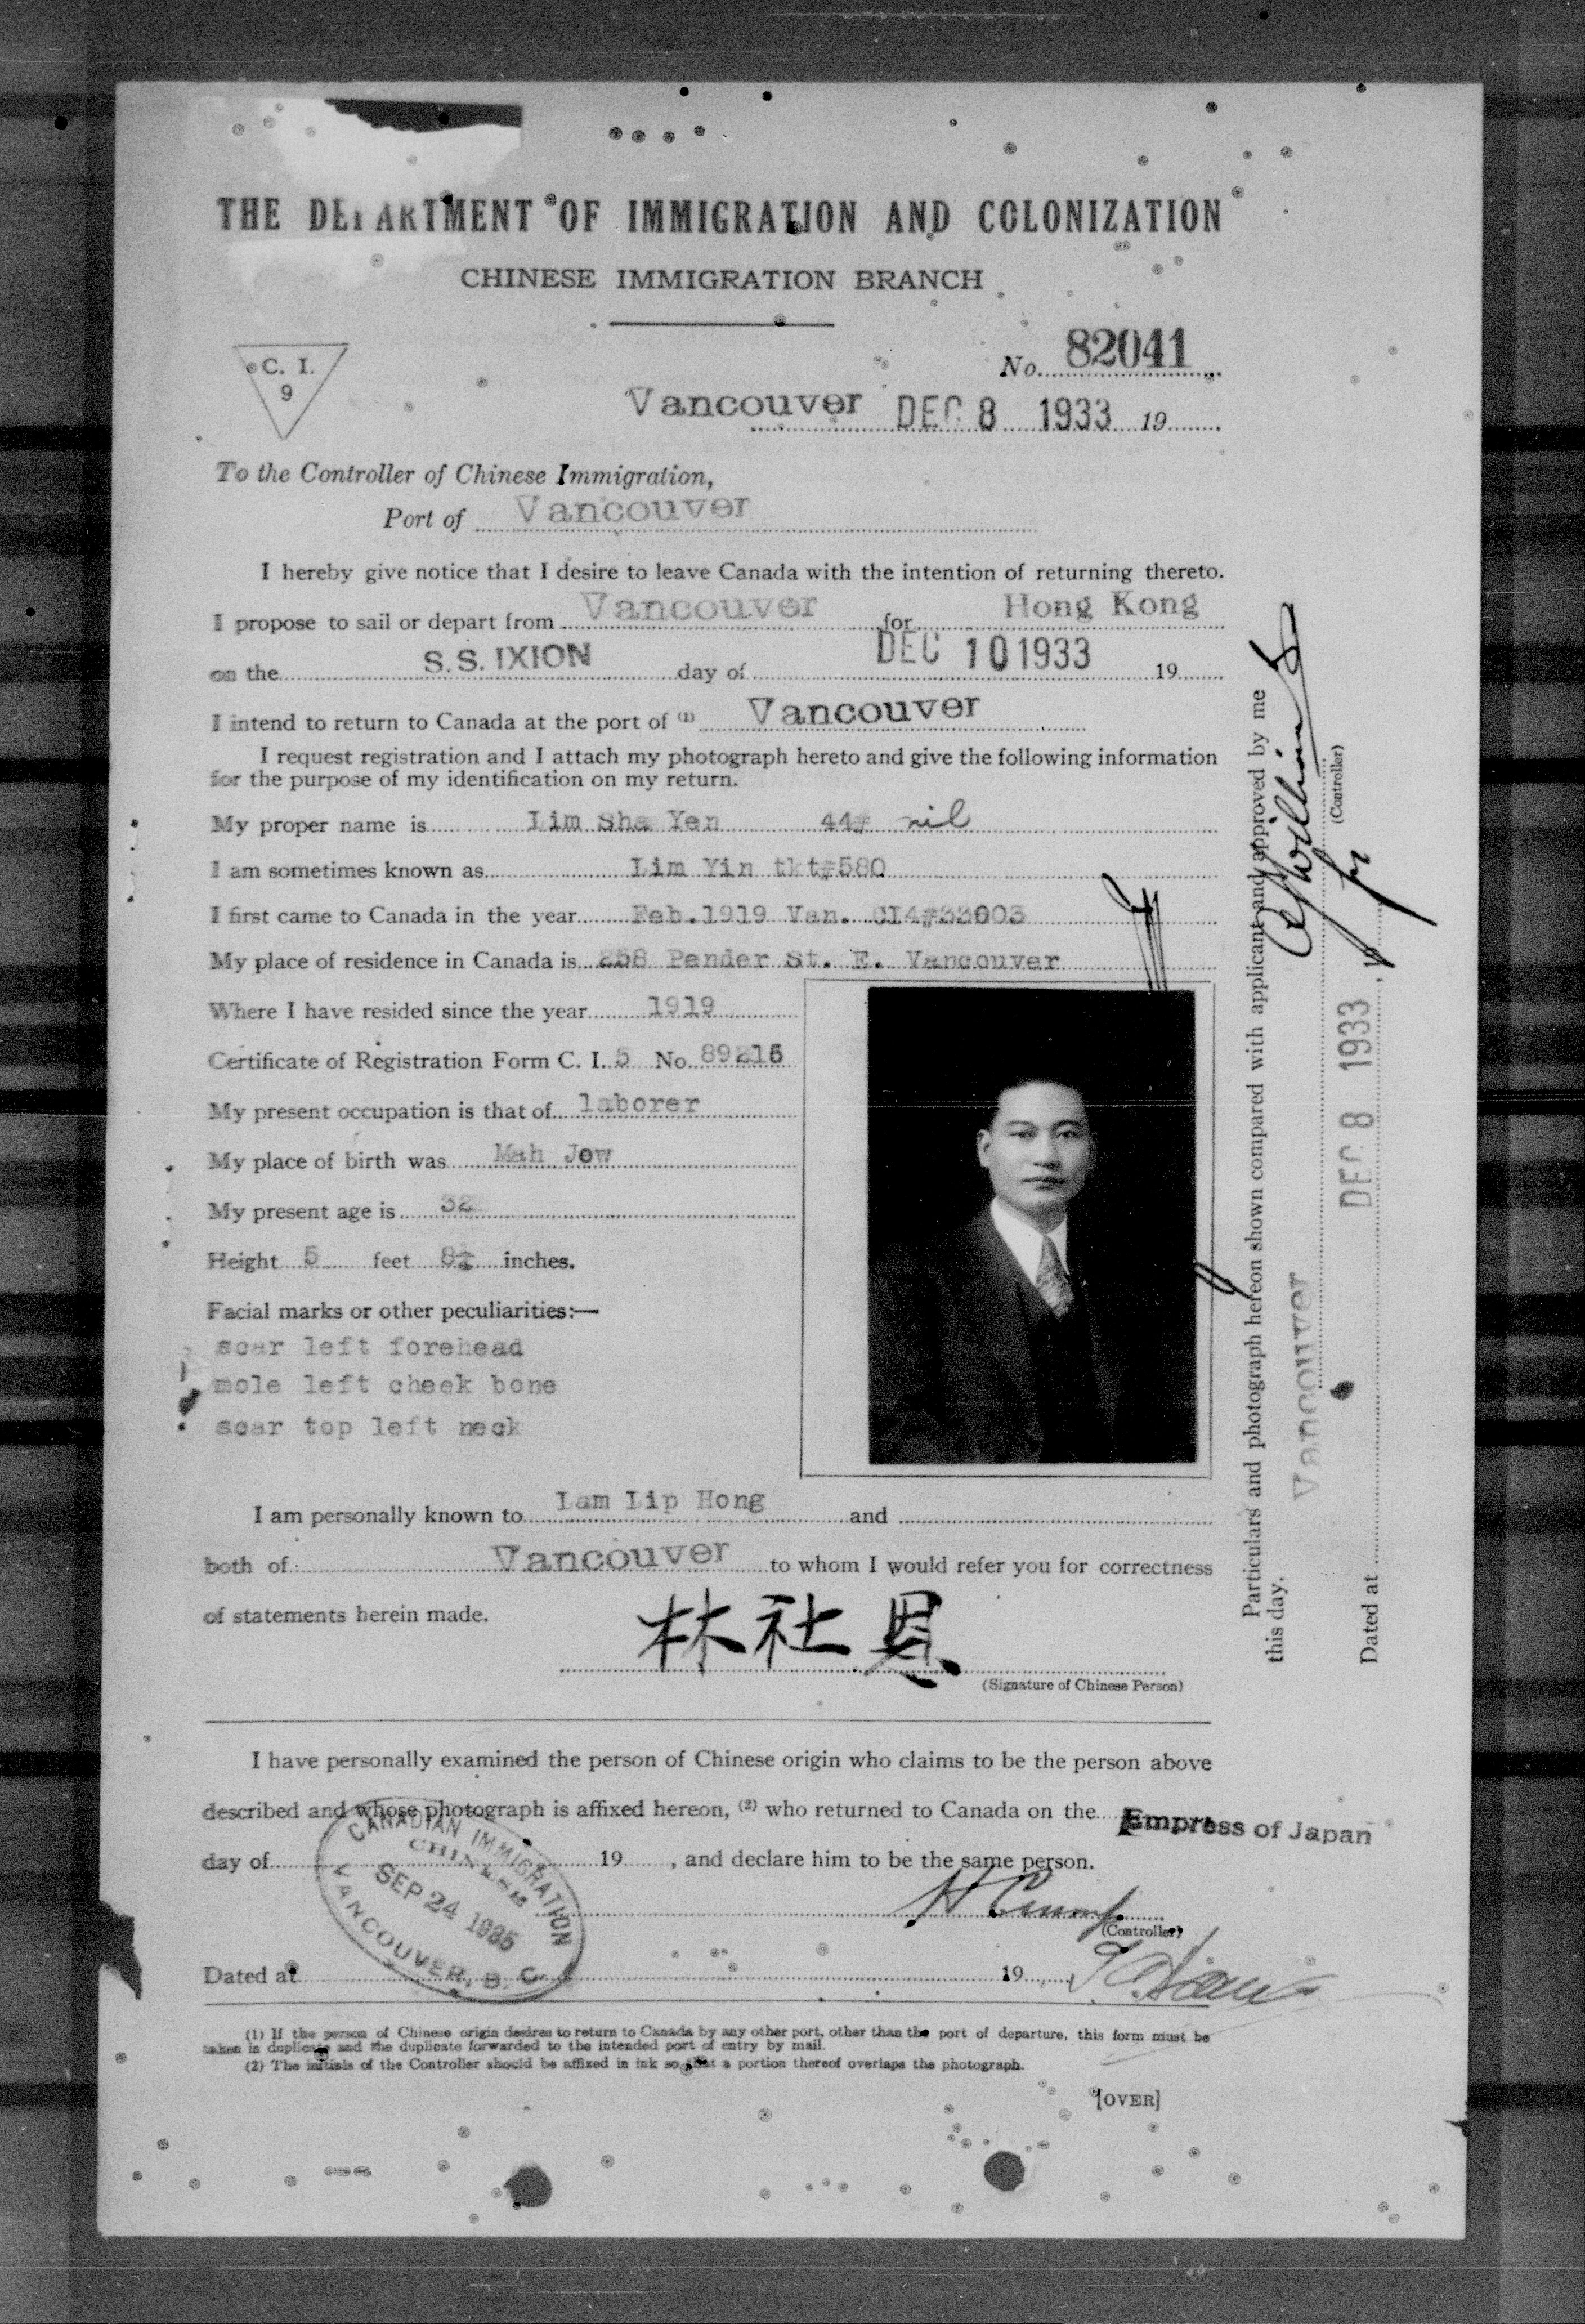 THE DEPARTMENT OF IMMIGRATION AND COLONIZATION
CHINESE IMMIGRATION BRANCH
C. I.
9
No. 82041
Vancouver DEC 8 1933 19
To the Controller of Chinese Immigration,
Port of Vancouver
I hereby give notice that I desire to leave Canada with the intention of returning thereto.
I propose to sail or depart from Vancouver for Hong Kong
on the S.S. IXION day of DEC 10 1933 19
I intend to return to Canada at the port of (1) Vancouver
I request registration and I attach my photograph hereto and give the following information
for the purpose of my identification on my return.
My proper name is Lim Sha Yen 44# nil
I am sometimes known as Lim Yin tkt#580
I first came to Canada in the year Feb.1919 Van. CI4#33003
My place of residence in Canada is 258 Pender St. E. Vancouver
Where I have resided since the year 1919
Certificate of Registration Form C. I. 5 No. 89216
My present occupation is that of laborer
My place of birth was Mah Jow
My present age is 32
Height 5 feet 8¼ inches.
Facial marks or other peculiarities:—
scar left forehead
mole left cheek bone
scar top left neck
I am personally known to Lam Lip Hong and
both of Vancouver to whom I would refer you for correctness
of statements herein made.
林社恩
(Signature of Chinese Person)
I have personally examined the person of Chinese origin who claims to be the person above
described and whose photograph is affixed hereon, (2) who returned to Canada on the Empress of Japan
day of 19 , and declare him to be the same person.
(Controller)
Dated at 19
CANADIAN IMMIGRATION
CHINESE
SEP 24 1935
VANCOUVER, B. C.
(1) If the person of Chinese origin desires to return to Canada by any other port, other than the port of departure, this form must be
taken in duplicate and the duplicate forwarded to the intended port of entry by mail.
(2) The initials of the Controller should be affixed in ink so that a portion thereof overlaps the photograph.
[OVER]
Particulars and photograph hereon shown compared with applicant and approved by me
this day.
Vancouver
(Controller)
Dated at DEC 8 1933 , 19